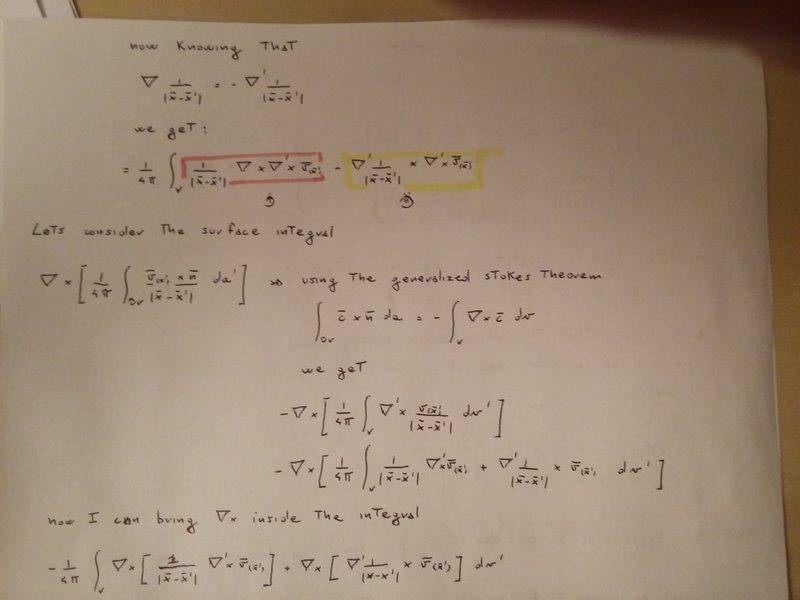 now knowing that
∇ 1/|x̄-x̄'| = - ∇' 1/|x̄-x̄'|
we get:
= 1/4π ∫_V 1/|x̄-x̄'| ∇ × ∇' × v̄(x̄') - ∇' 1/|x̄-x̄'| × ∇' × v̄(x̄')
Lets consider the surface integral
∇ × [ 1/4π ∫_∂V v̄(x̄') × n̄ / |x̄-x̄'| da' ] ⇒ using the generalized stokes theorem
∫_∂V c̄ × n̄ da = - ∫_V ∇ × c̄ dv
we get
- ∇ × [ 1/4π ∫_V ∇' × v̄(x̄') / |x̄-x̄'| dv' ]
- ∇ × [ 1/4π ∫_V 1/|x̄-x̄'| ∇' × v̄(x̄') + ∇' 1/|x̄-x̄'| × v̄(x̄') dv' ]
now I can bring ∇× inside the integral
- 1/4π ∫_V ∇ × [ 1/|x̄-x̄'| ∇' × v̄(x̄') ] + ∇ × [ ∇' 1/|x-x'| × v̄(x̄') ] dv'